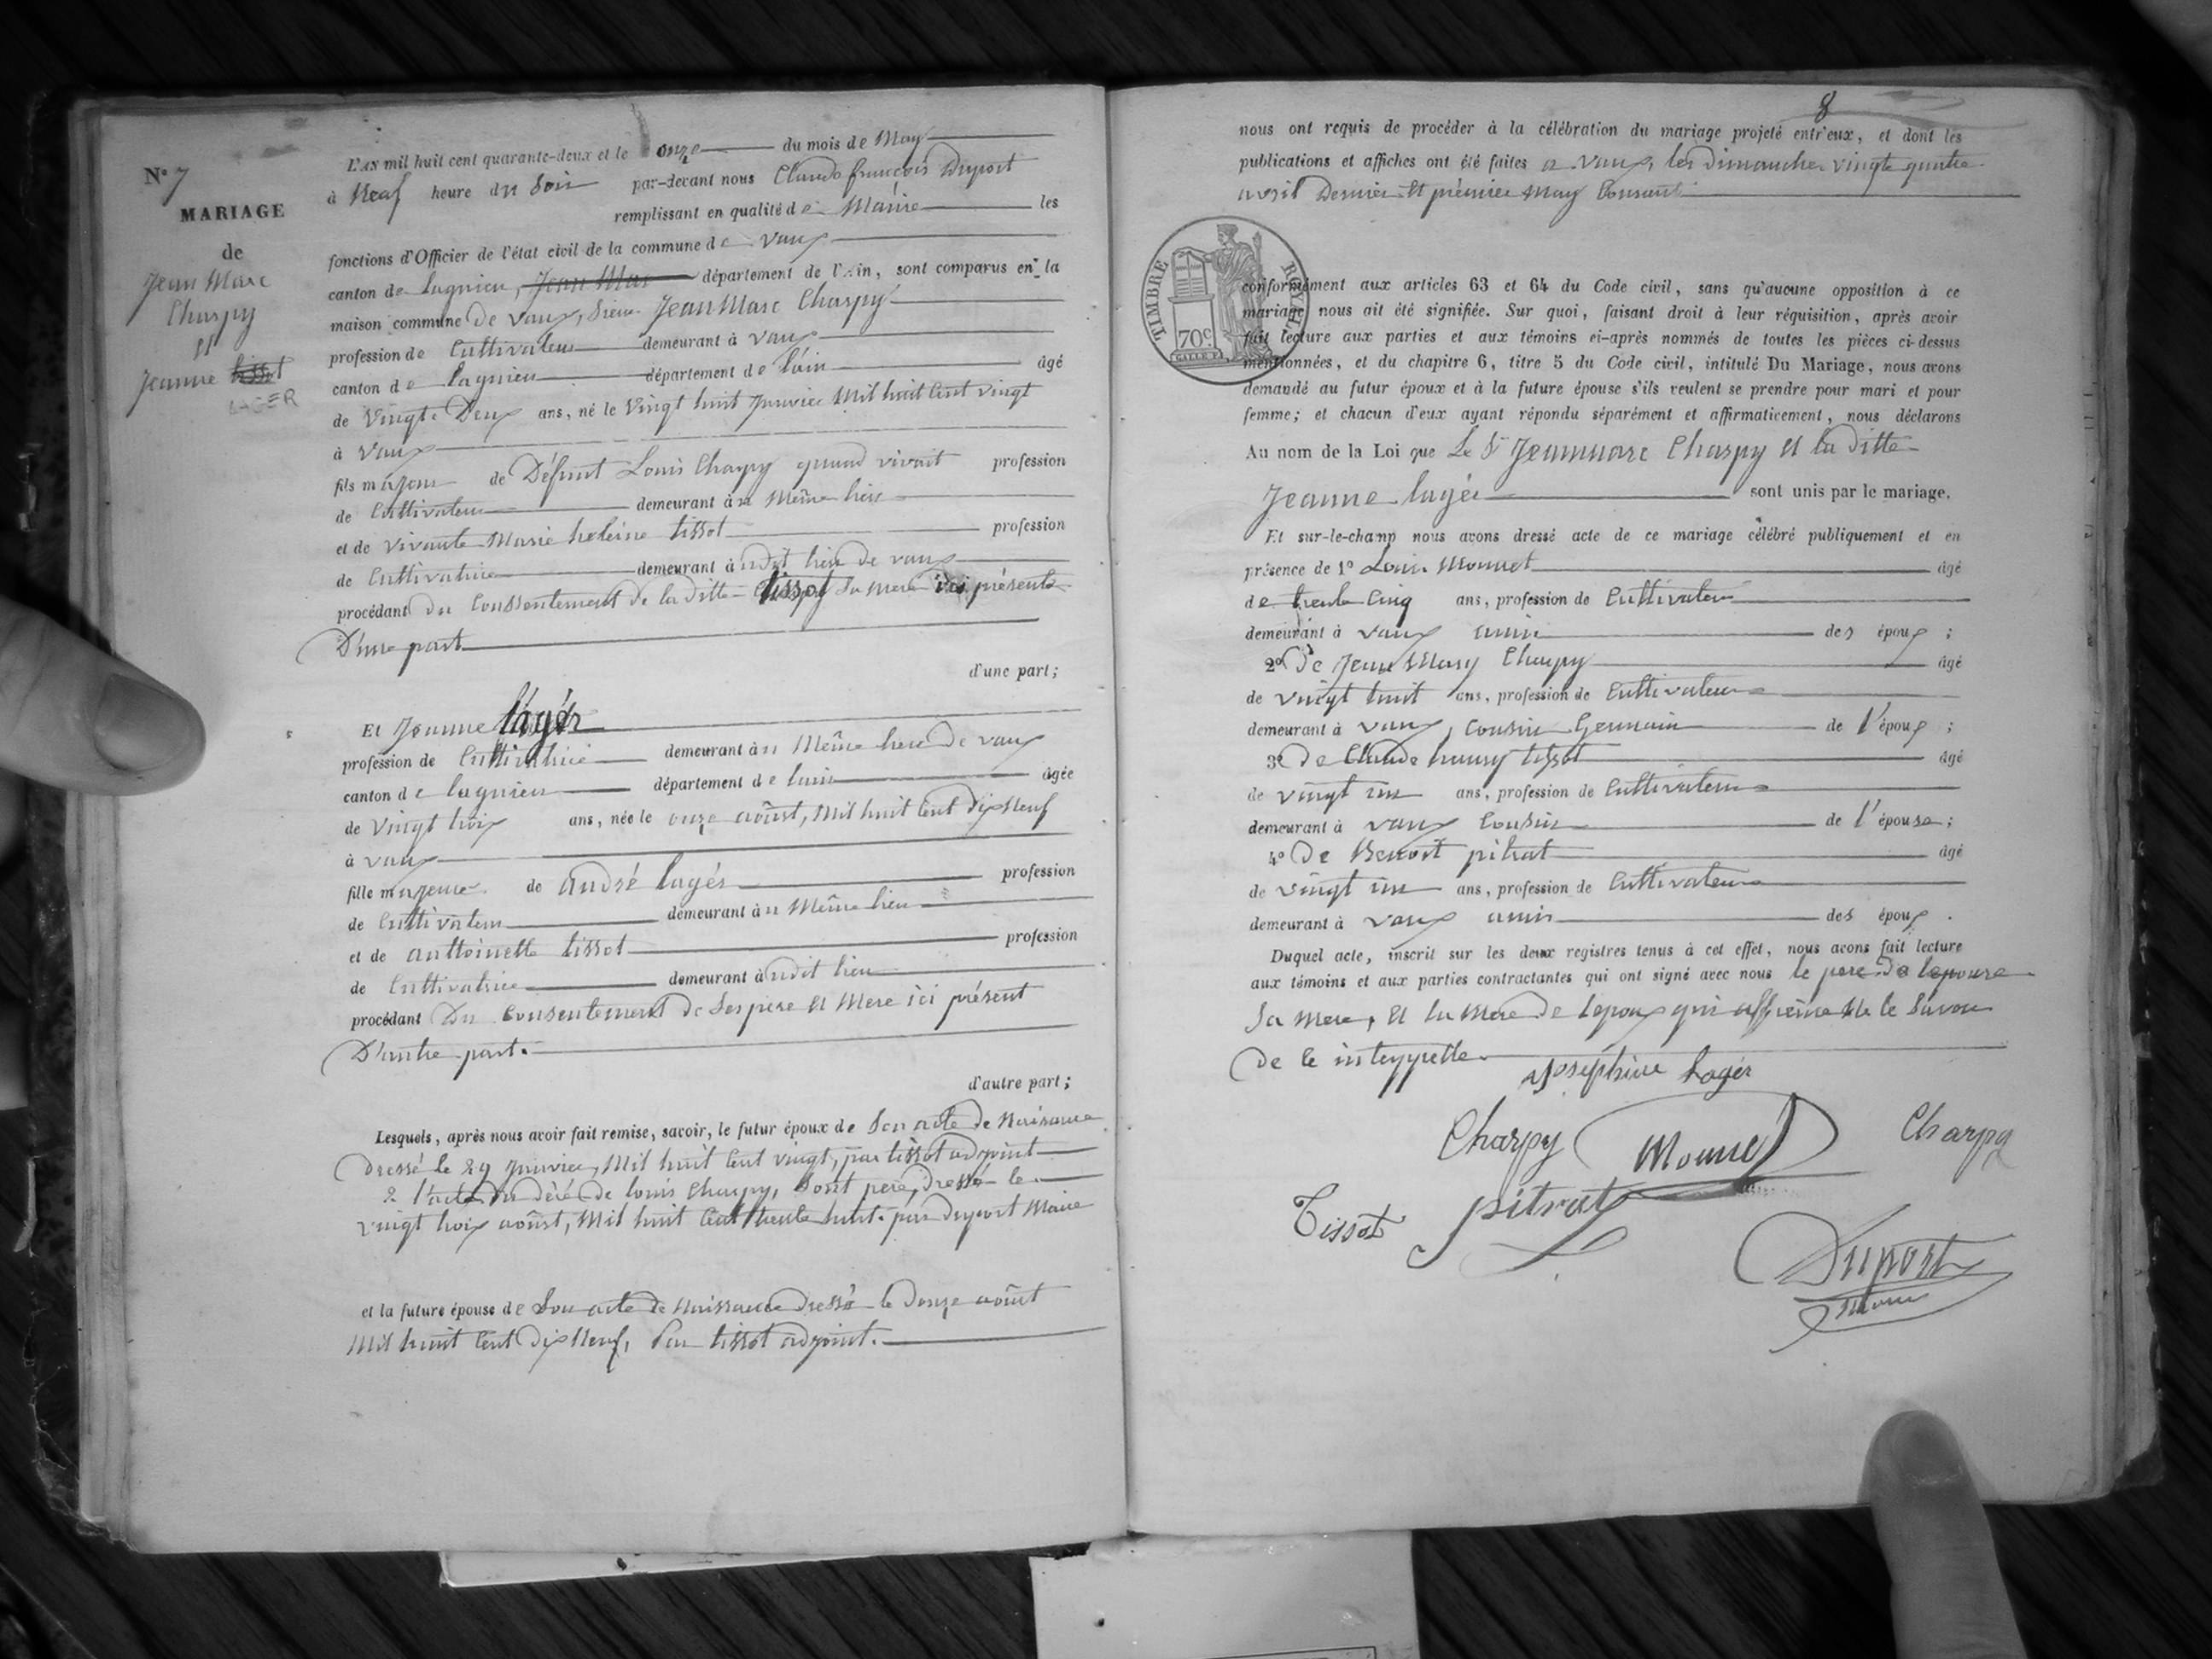 N° 7
MARIAGE
de
Jean Marc
Charpy
et
Jeanne tissot
LAGER
L'AN mil huit cent quarante-deux et le onze du mois de May
à Neuf heure du Soir par-devant nous Claude françois Duport
remplissant en qualité de Maire les
fonctions d'Officier de l'état civil de la commune de Vaux
canton de lagnieu, Jean Mar département de l'Ain, sont comparus en la
maison commune de Vaux, Sieur Jean Marc Charpy
profession de Cultivateur demeurant à Vaux
canton de lagnieu département de l'ain âgé
de Vingt Deux ans, né le Vingt huit Janvier Mil huit Cent Vingt
à Vaux
fils majeur de Défunt Louis Charpy quand vivait profession
de Cultivateur demeurant au Même lieu
et de vivante Marie heleine tissot profession
de Cultivatrice demeurant audit lieu de vaux
procédant du Conssentement de la ditte tissot Sa mere ici présente
D'une part
d'une part;
Et Jeanne lagér
profession de Cultivatrice demeurant au Même lieu de vaux
canton de lagnieu département de lain âgée
de Vingt trois ans, née le onze aoûst, Mil huit Cent Dix Neuf
à vaux
fille majeure de André lagér profession
de Cultivateur demeurant au Même lieu
et de anttoinette tissot profession
de Cultivatrice demeurant audit lieu
procédant Du Consentement de Ses pere et Mere ici présent
D'autre part.
d'autre part;
Lesquels, après nous avoir fait remise, savoir, le futur époux de Son acte de Naissance
Dressé le 29 Janvier, Mil huit Cent vingt, par tissot adjoint
2 l'acte du décé de louis Charpy, Sont pere, dressé le
vingt trois aoûst, Mil huit Cent trente huit par duport Maire
et la future épouse de Son acte de Naissance Dressé le Douze aoûst
Mil huit Cent Dix Neuf, Par tissot adjoint.
8
nous ont requis de procéder à la célébration du mariage projeté entr'eux, et dont les
publications et affiches ont été faites a Vaux, les Dimanches vingt quatre
avril Dernier Et premier May Courant
TIMBRE ROYAL
70c
conformément aux articles 63 et 64 du Code civil, sans qu'aucune opposition à ce
mariage nous ait été signifiée. Sur quoi, faisant droit à leur réquisition, après avoir
fait lecture aux parties et aux témoins ci-après nommés de toutes les pièces ci-dessus
mentionnées, et du chapitre 6, titre 5 du Code civil, intitulé Du Mariage, nous avons
demandé au futur époux et à la future épouse s'ils veulent se prendre pour mari et pour
femme; et chacun d'eux ayant répondu séparément et affirmativement, nous déclarons
Au nom de la Loi que Le Sr Jeanmarc Charpy et la ditte
Jeanne lagér sont unis par le mariage.
Et sur-le-champ nous avons dressé acte de ce mariage célébré publiquement et en
présence de 1° Louis Monnet âgé
de trente Cinq ans, profession de Cultivateur
demeurant à vaux amis des époux ;
2° De Jean Mary Charpy âgé
de vingt huit ans, profession de Cultivateur
demeurant à vaux, Cousin Germain de l'époux ;
3° De Claude tissot âgé
de vingt un ans, profession de Cultivateur
demeurant à vaux Cousin de l'épouse;
4° De Benoit pitrat âgé
de vingt un ans, profession de Cultivateur
demeurant à vaux amis des époux .
Duquel acte, inscrit sur les deux registres tenus à cet effet, nous avons fait lecture
aux témoins et aux parties contractantes qui ont signé avec nous le pere de lepouse
Sa Mere, Et la Mere de lepoux qui le Savoir
de le
Josephine Lagér
Charpy Monnet Charpy
Tissot pitrat
Duport
Maire